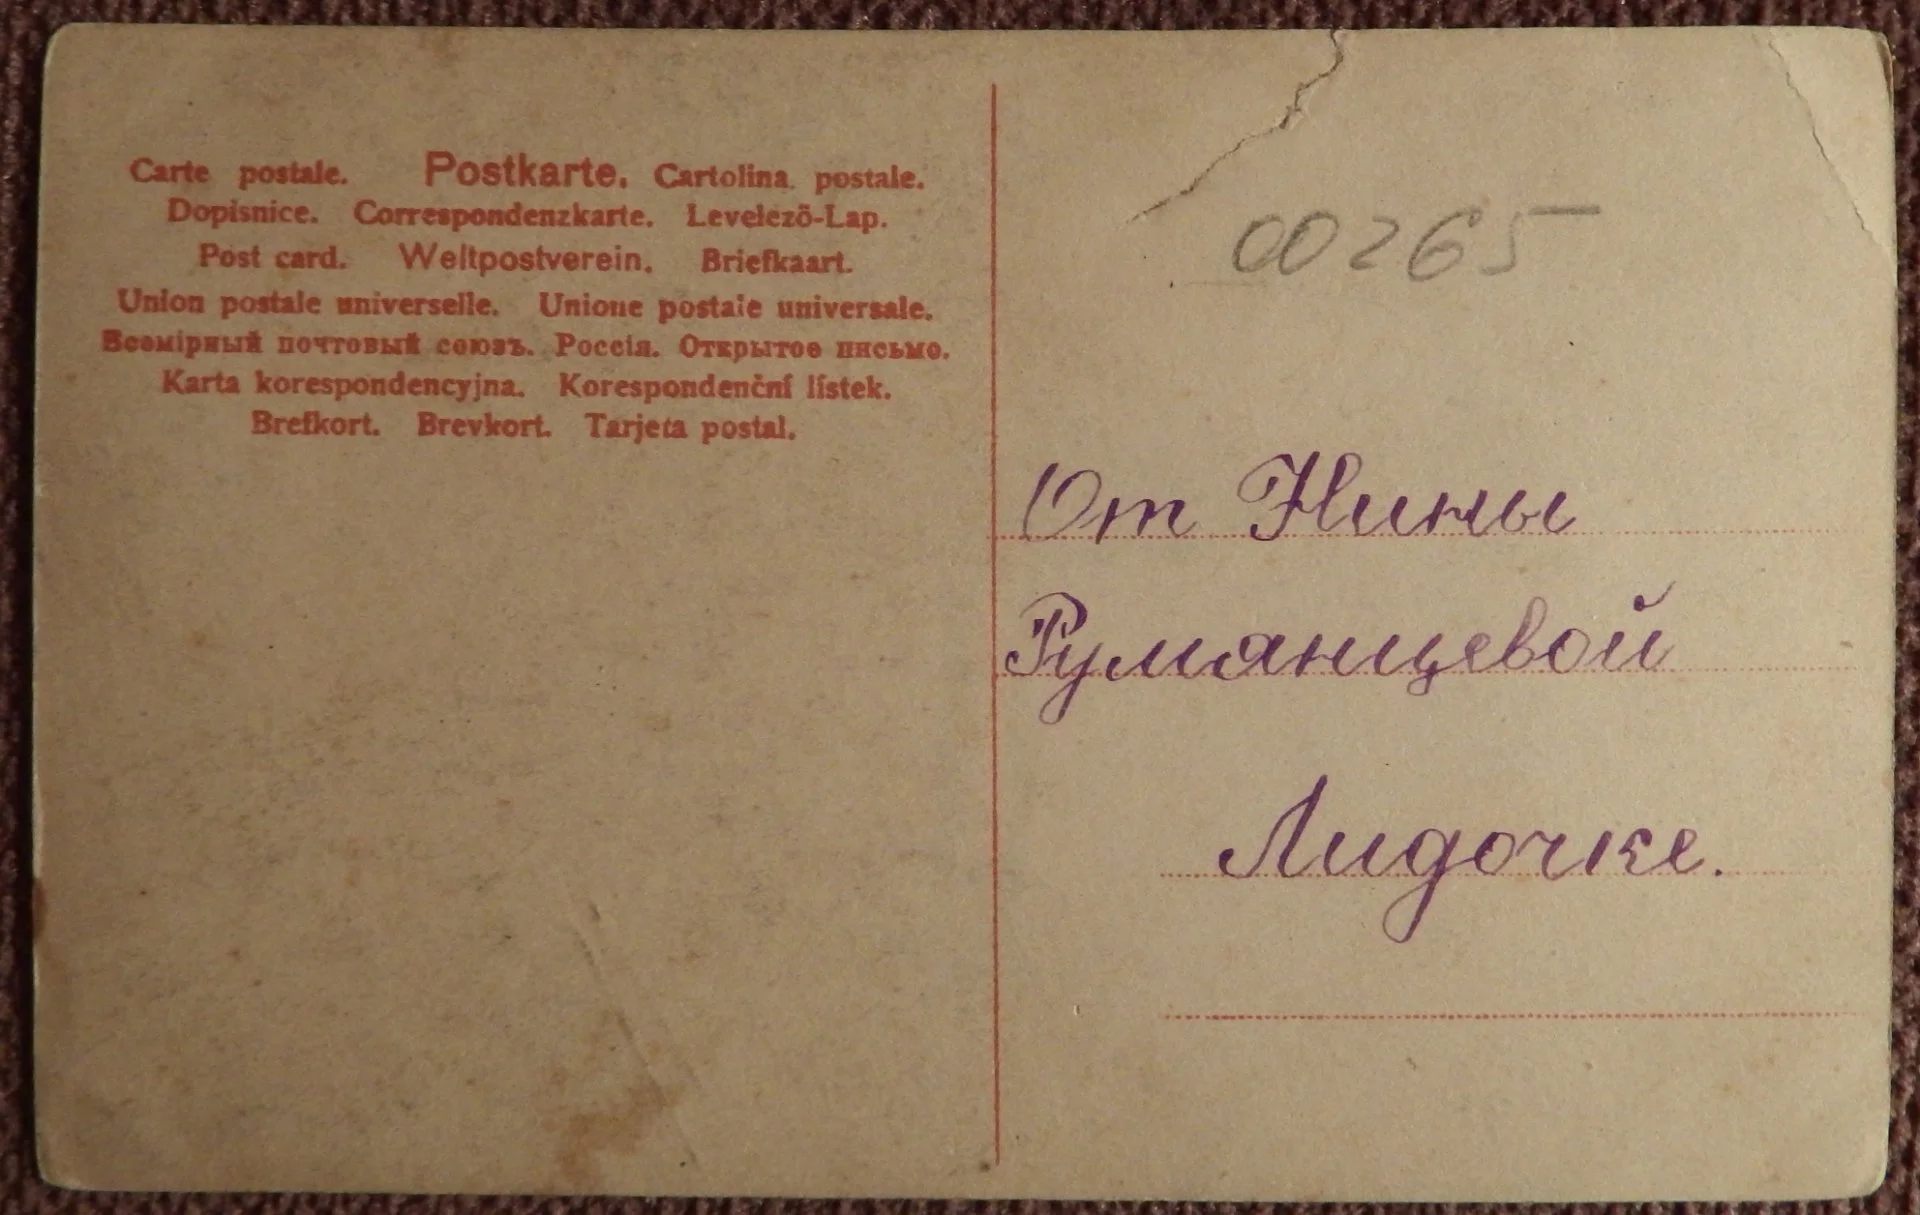 Carte postale. Postkarte. Cartolina postale.
Dopisnice. Correspondenzkarte. Levelező-Lap.
Post card. Weltpostverein. Briefkaart.
Union postale universelle. Unione postale universale.
Всемірный почтовый союзъ. Россія. Открытое письмо.
Karta korespondencyjna. Korespondenční lístek.
Brefkort. Brevkort. Tarjeta postal.
00265
От Нины
Румянцевой
Лидочке.